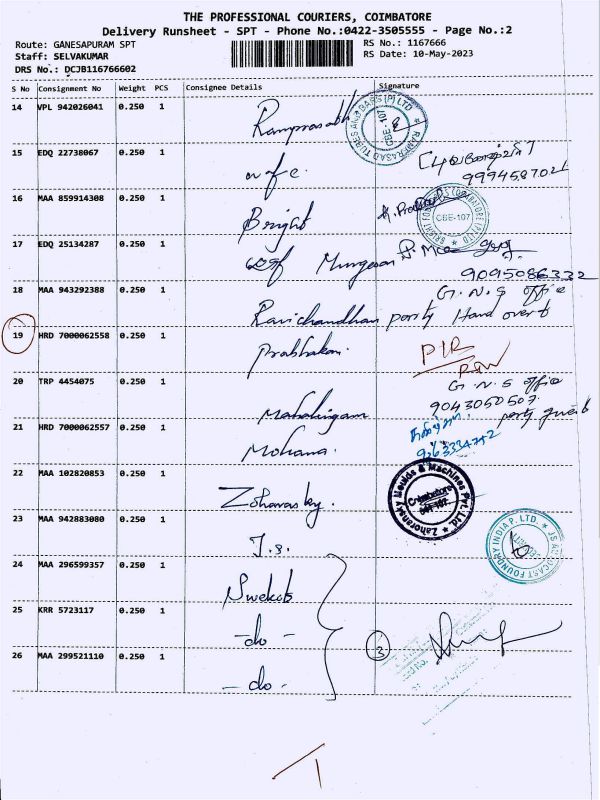 THE PROFESSIONAL COURIERS, COIMBATORE
Delivery Runsheet - SPT - Phone No.:0422-3505555 - Page No.:2
Route: GANESAPURAM SPT
RS No.: 1167666
Staff: SELVAKUMAR
RS Date: 10-May-2023
DRS No.: DCJB116766602
S No Consignment No Weight PCS Consignee Details Signature
14 VPL 942026041 0.250 1 Ramprasath
RAMPRASAD TUBES AND BARS (P) LTD CBE-107
15 EDQ 22738067 0.250 1
9994587021
16 MAA 859914308 0.250 1 Bright
CBE-107
17 EDQ 25134287 0.250 1 Murugesan
9095086332
18 MAA 943292388 0.250 1 Ravichandhan party Hand over to
G.N.S office
19 HRD 7000062558 0.250 1 Prabhakan
20 TRP 4454075 0.250 1 Mahalingam
G.N.S office
9043050507
21 HRD 7000062557 0.250 1 Mohana
22 MAA 102820853 0.250 1 Zohoransky
Zahoransky Moulds & Machines Pvt. Ltd. Coimbatore 641 107
23 MAA 942883080 0.250 1 J.s.
JS AUTOCAST FOUNDRY INDIA P. LTD.
24 MAA 296599357 0.250 1
25 KRR 5723117 0.250 1 - do -
26 MAA 299521110 0.250 1 - do -
3